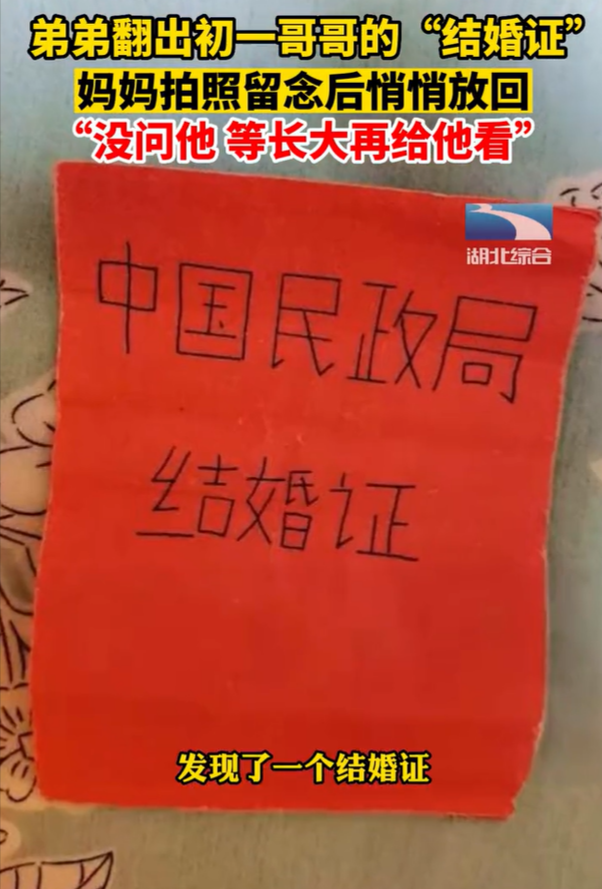 弟弟翻出初一哥哥的“结婚证”
妈妈拍照留念后悄悄放回
“没问他 等长大再给他看”
湖北综合
中国民政局
结婚证
发现了一个结婚证